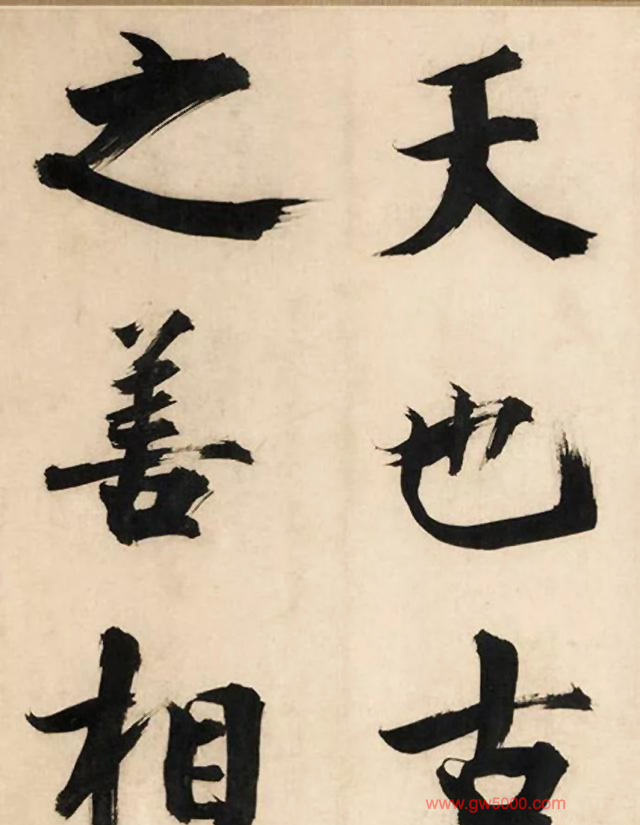 天也古
之善相
www.gw5000.com